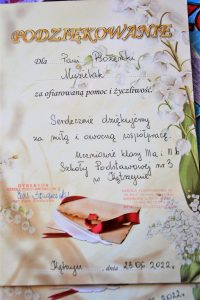 PODZIĘKOWANIE
Dla Pani Bożenki
za ofiarowaną pomoc i życzliwość.
Serdecznie dziękujemy
za miłą i owocną współpracę
Uczniowie klasy III a i III b
Szkoły Podstawowej nr 3
w Kętrzynie
DYREKTOR
Kętrzyn, dnia 23.06.2022
2022